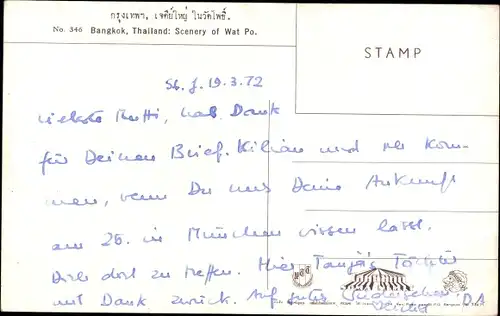 กรุงเทพฯ, เจดีย์ใหญ่ ในวัดโพธิ์.
No. 346 Bangkok, Thailand: Scenery of Wat Po.
STAMP
19.3.72
Liebste Mutti, hab Dank
für Deinen Brief. Kilian und
men, wenn Du uns Deine Ankunft
am 26. in München wissen lasst.
Dich dort zu treffen. Hier Tanja's
mit Dank zurück. Auf gutes Wiedersehen